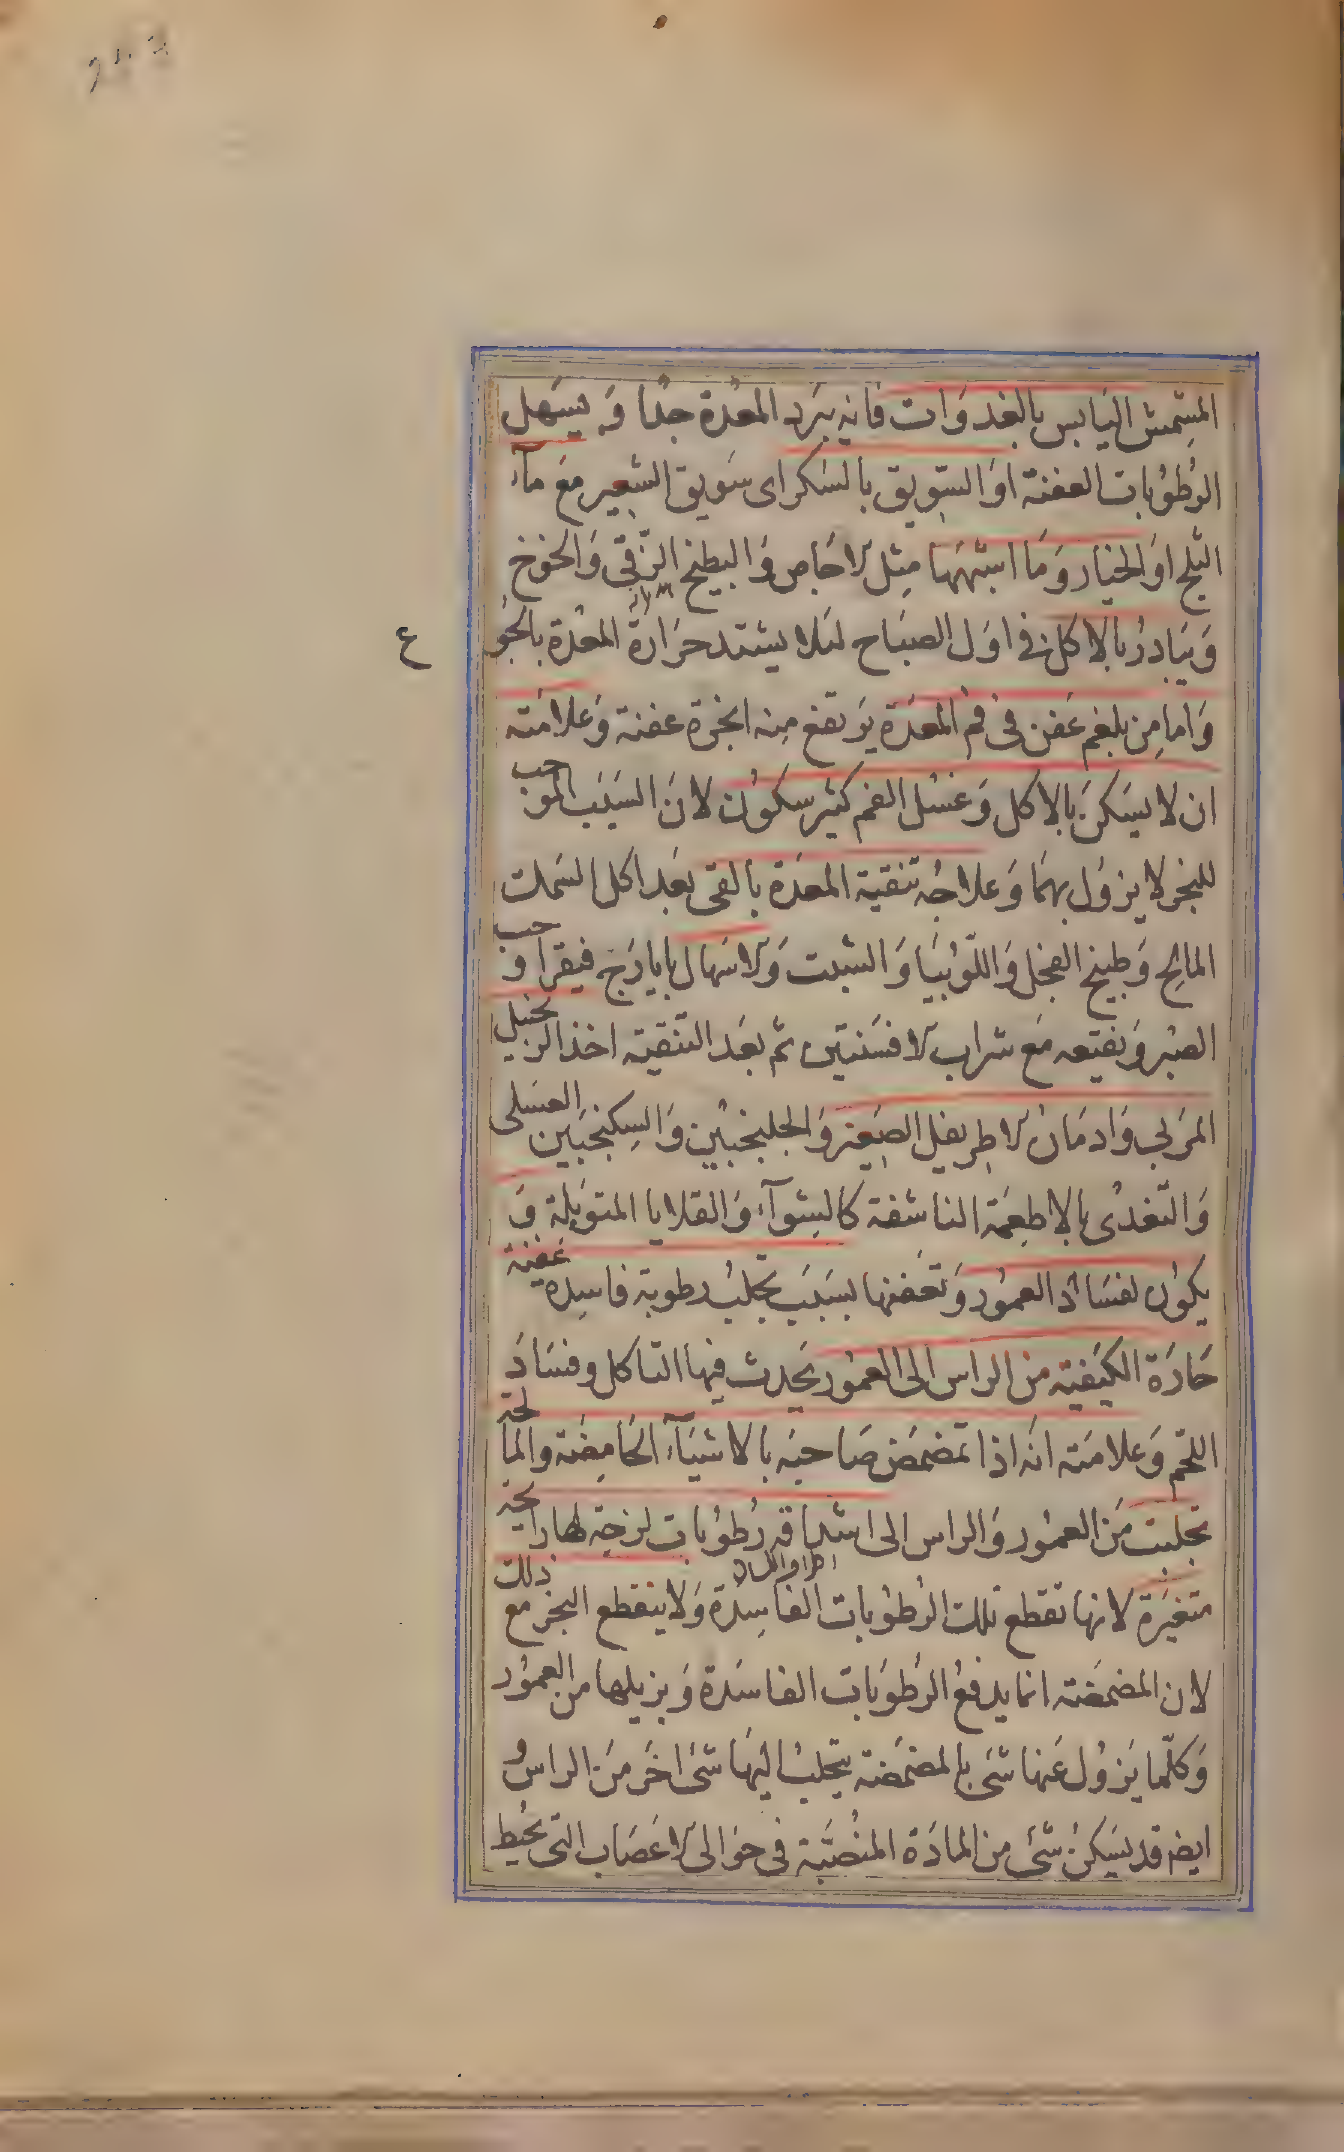 المشمش اليابس بالغدوات فانه يبرد المعدة جدا و يسهل
الرطوبات العفنة او السويق بالسكر اى سويق الشعير مع مآء
الثلج او الخيار و ما اشبهها مثل الاجاص و البطيخ الزقى و الخوخ
و يبادر بالاكل فى اول الصباح لئلا يشتد حرارة المعدة بالجو
ع
و اما من بلغم عفن فى فم المعدة يرتفع منه ابخرة عفنة و علامته
ان لا يسكن بالاكل و غسل الفم كثير سكون لان السبب الموجب
للبخر لا يزول بهما و علاجه تنقية المعدة بالقى بعد اكل السمك
المالح و طبيخ الفجل و اللوبيا و الشبت و الاسهال بايارج فيقرا و حب
الصبر و نقيعه مع شراب الافسنتين ثم بعد التنقية اخذ الزنجبيل
المربى و ادمان الاطريفل الصغير و الجلنجبين و السكنجبين العسلى
و التغذى بالاطعمة الناشفة كالشوآء و القلايا المتوبلة و
يكون لفساد العمور و تعفنها بسبب تحلب رطوبة فاسدة عفنة
حادة الكيفية من الراس الى العمور يحدث فيها التاكل و فساد
اللحم و علامته انه اذا تمضمض صاحبه بالاشيآء الحامضة و المالحة
تحلبت من العمور و الراس الى اشداقه رطوبات لزجة لها رايحة
متغيرة لانها تقطع تلك الرطوبات الفاسدة و لا ينقطع البخر مع ذلك
لان المضمضة انما يدفع الرطوبات الفاسدة و يزيلها من العمور
و كلما يزول عنها شى بالمضمضة يتحلب اليها شى اخر من الراس و
ايض قد يسكن شى من المادة المنصبة فى حوالى الاعصاب التى تحيط